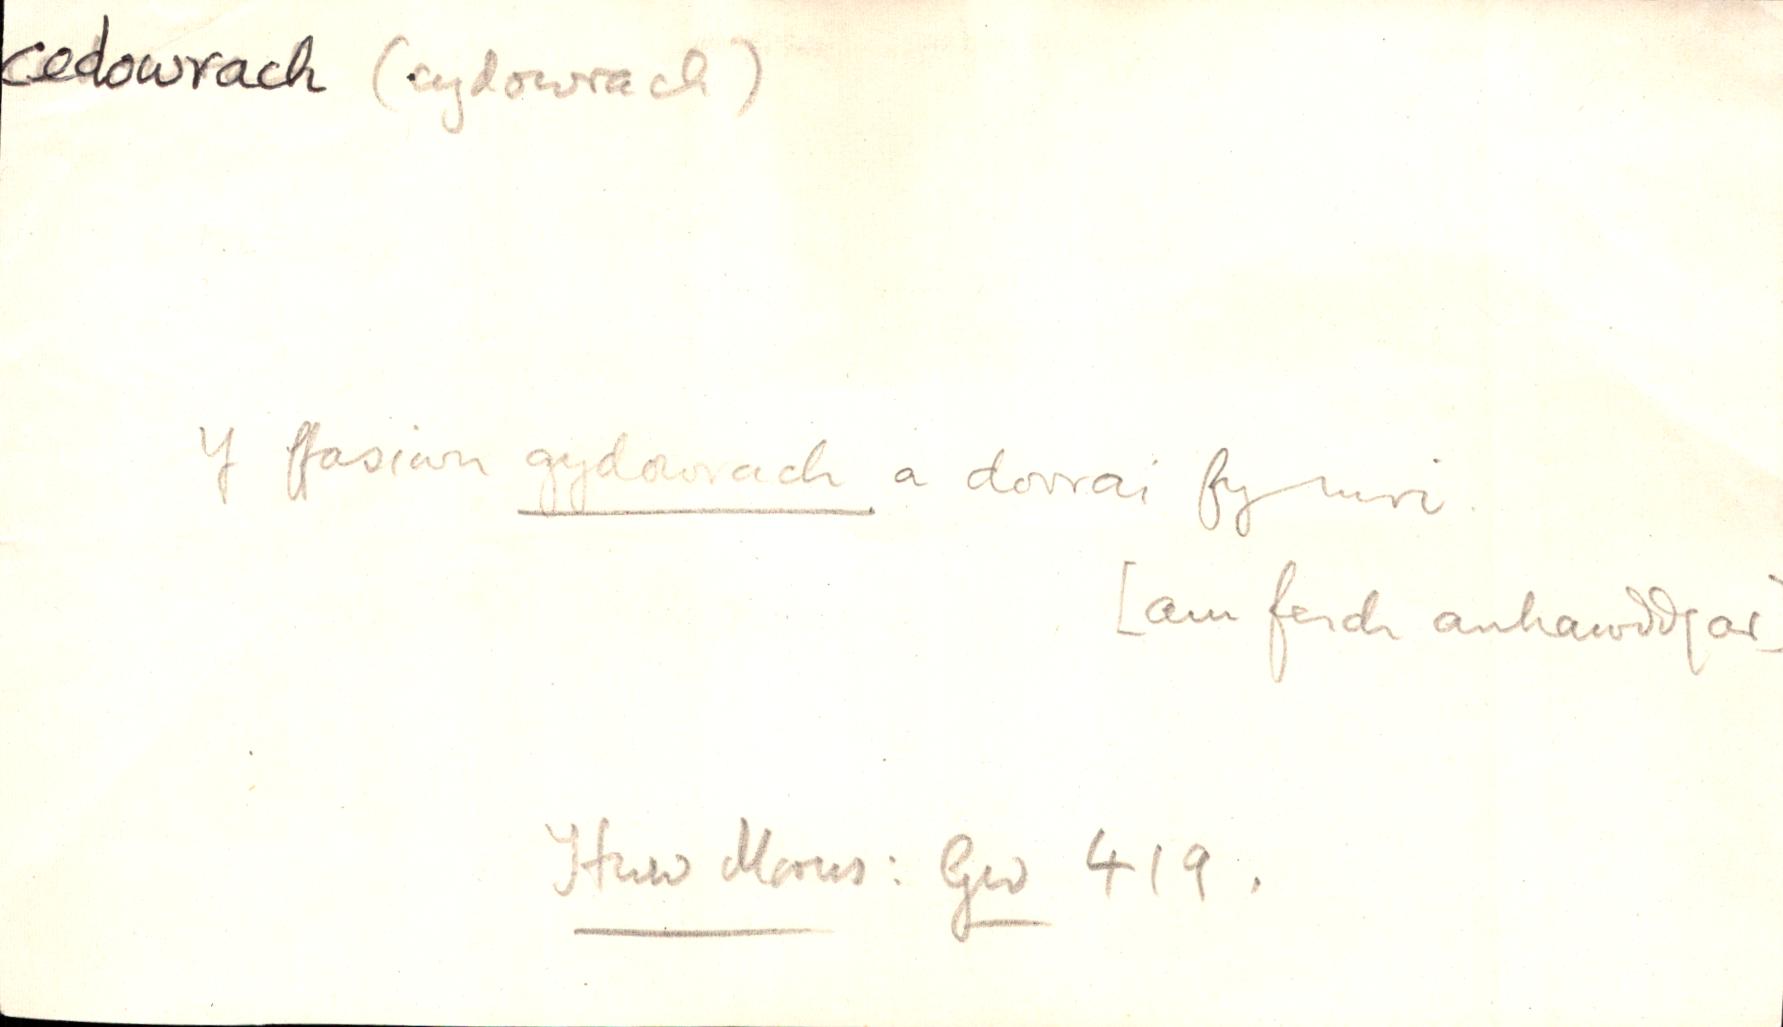 cedowrach (cydowrach)
Y ffasiwn gydowrach a dorrai fy nwri.
[am ferch anhawddgar]
Huw Morus: Gw 419.